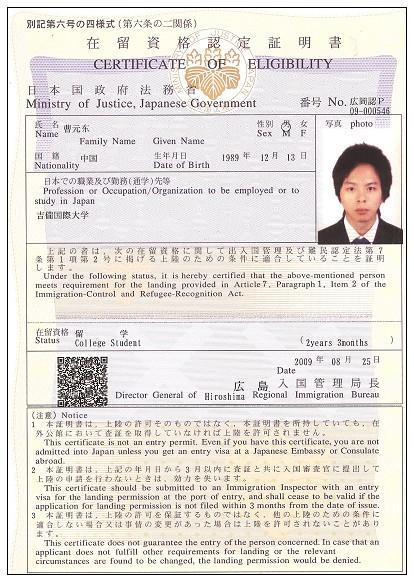 別記第六号の四様式(第六条の二関係)
在留資格認定証明書
CERTIFICATE OF ELIGIBILITY
日本国政府法務省
Ministry of Justice, Japanese Government
番号 No. 広岡認P
09-000546
氏名 曹元东
Name Family Name Given Name
性別 男 女
Sex M F
写真 photo
国籍 中国
Nationality
生年月日 1989 年 12 月 13 日
Date of Birth
日本での職業及び勤務(通学)先等
Profession or Occupation/Organization to be employed or to
study in Japan
吉備国際大学
上記の者は、次の在留資格に関して出入国管理及び難民認定法第7
条第1項第2号に掲げる上陸のための条件に適合していることを証明
します。
Under the following status, it is hereby certified that the above-mentioned person
meets requirement for the landing provided in Article 7, Paragraph 1, Item 2 of the
Immigration-Control and Refugee-Recognition Act.
在留資格 留 学
Status College Student (2years 3months)
2009 年 08 月 25 日
Date
広島入国管理局長
Director General of Hiroshima Regional Immigration Bureau
(注意) Notice
1 本証明書は、上陸の許可そのものではなく、本証明書を所持していても、在
外公館において査証を取得していなければ上陸を許可されません。
This certificate is not an entry permit. Even if you have this certificate, you are not
admitted into Japan unless you get an entry visa at a Japanese Embassy or Consulate
abroad.
2 本証明書は、上記の年月日から3月以内に査証と共に入国審査官に提出して
上陸の申請を行わないときは、効力を失います。
This certificate should be submitted to an Immigration Inspector with an entry
visa for the landing permission at the port of entry, and shall cease to be valid if the
application for landing permission is not filed within 3 months from the date of issue.
3 本証明書は上陸の許可を保証するものではなく、他の上陸のための条件に
適合しない場合又は事情の変更があった場合は上陸を許可されないことがあり
ます。
This certificate does not guarantee the entry of the person concerned. In case that an
applicant does not fulfill other requirements for landing or the relevant
circumstances are found to be changed, the landing permission would be denied.